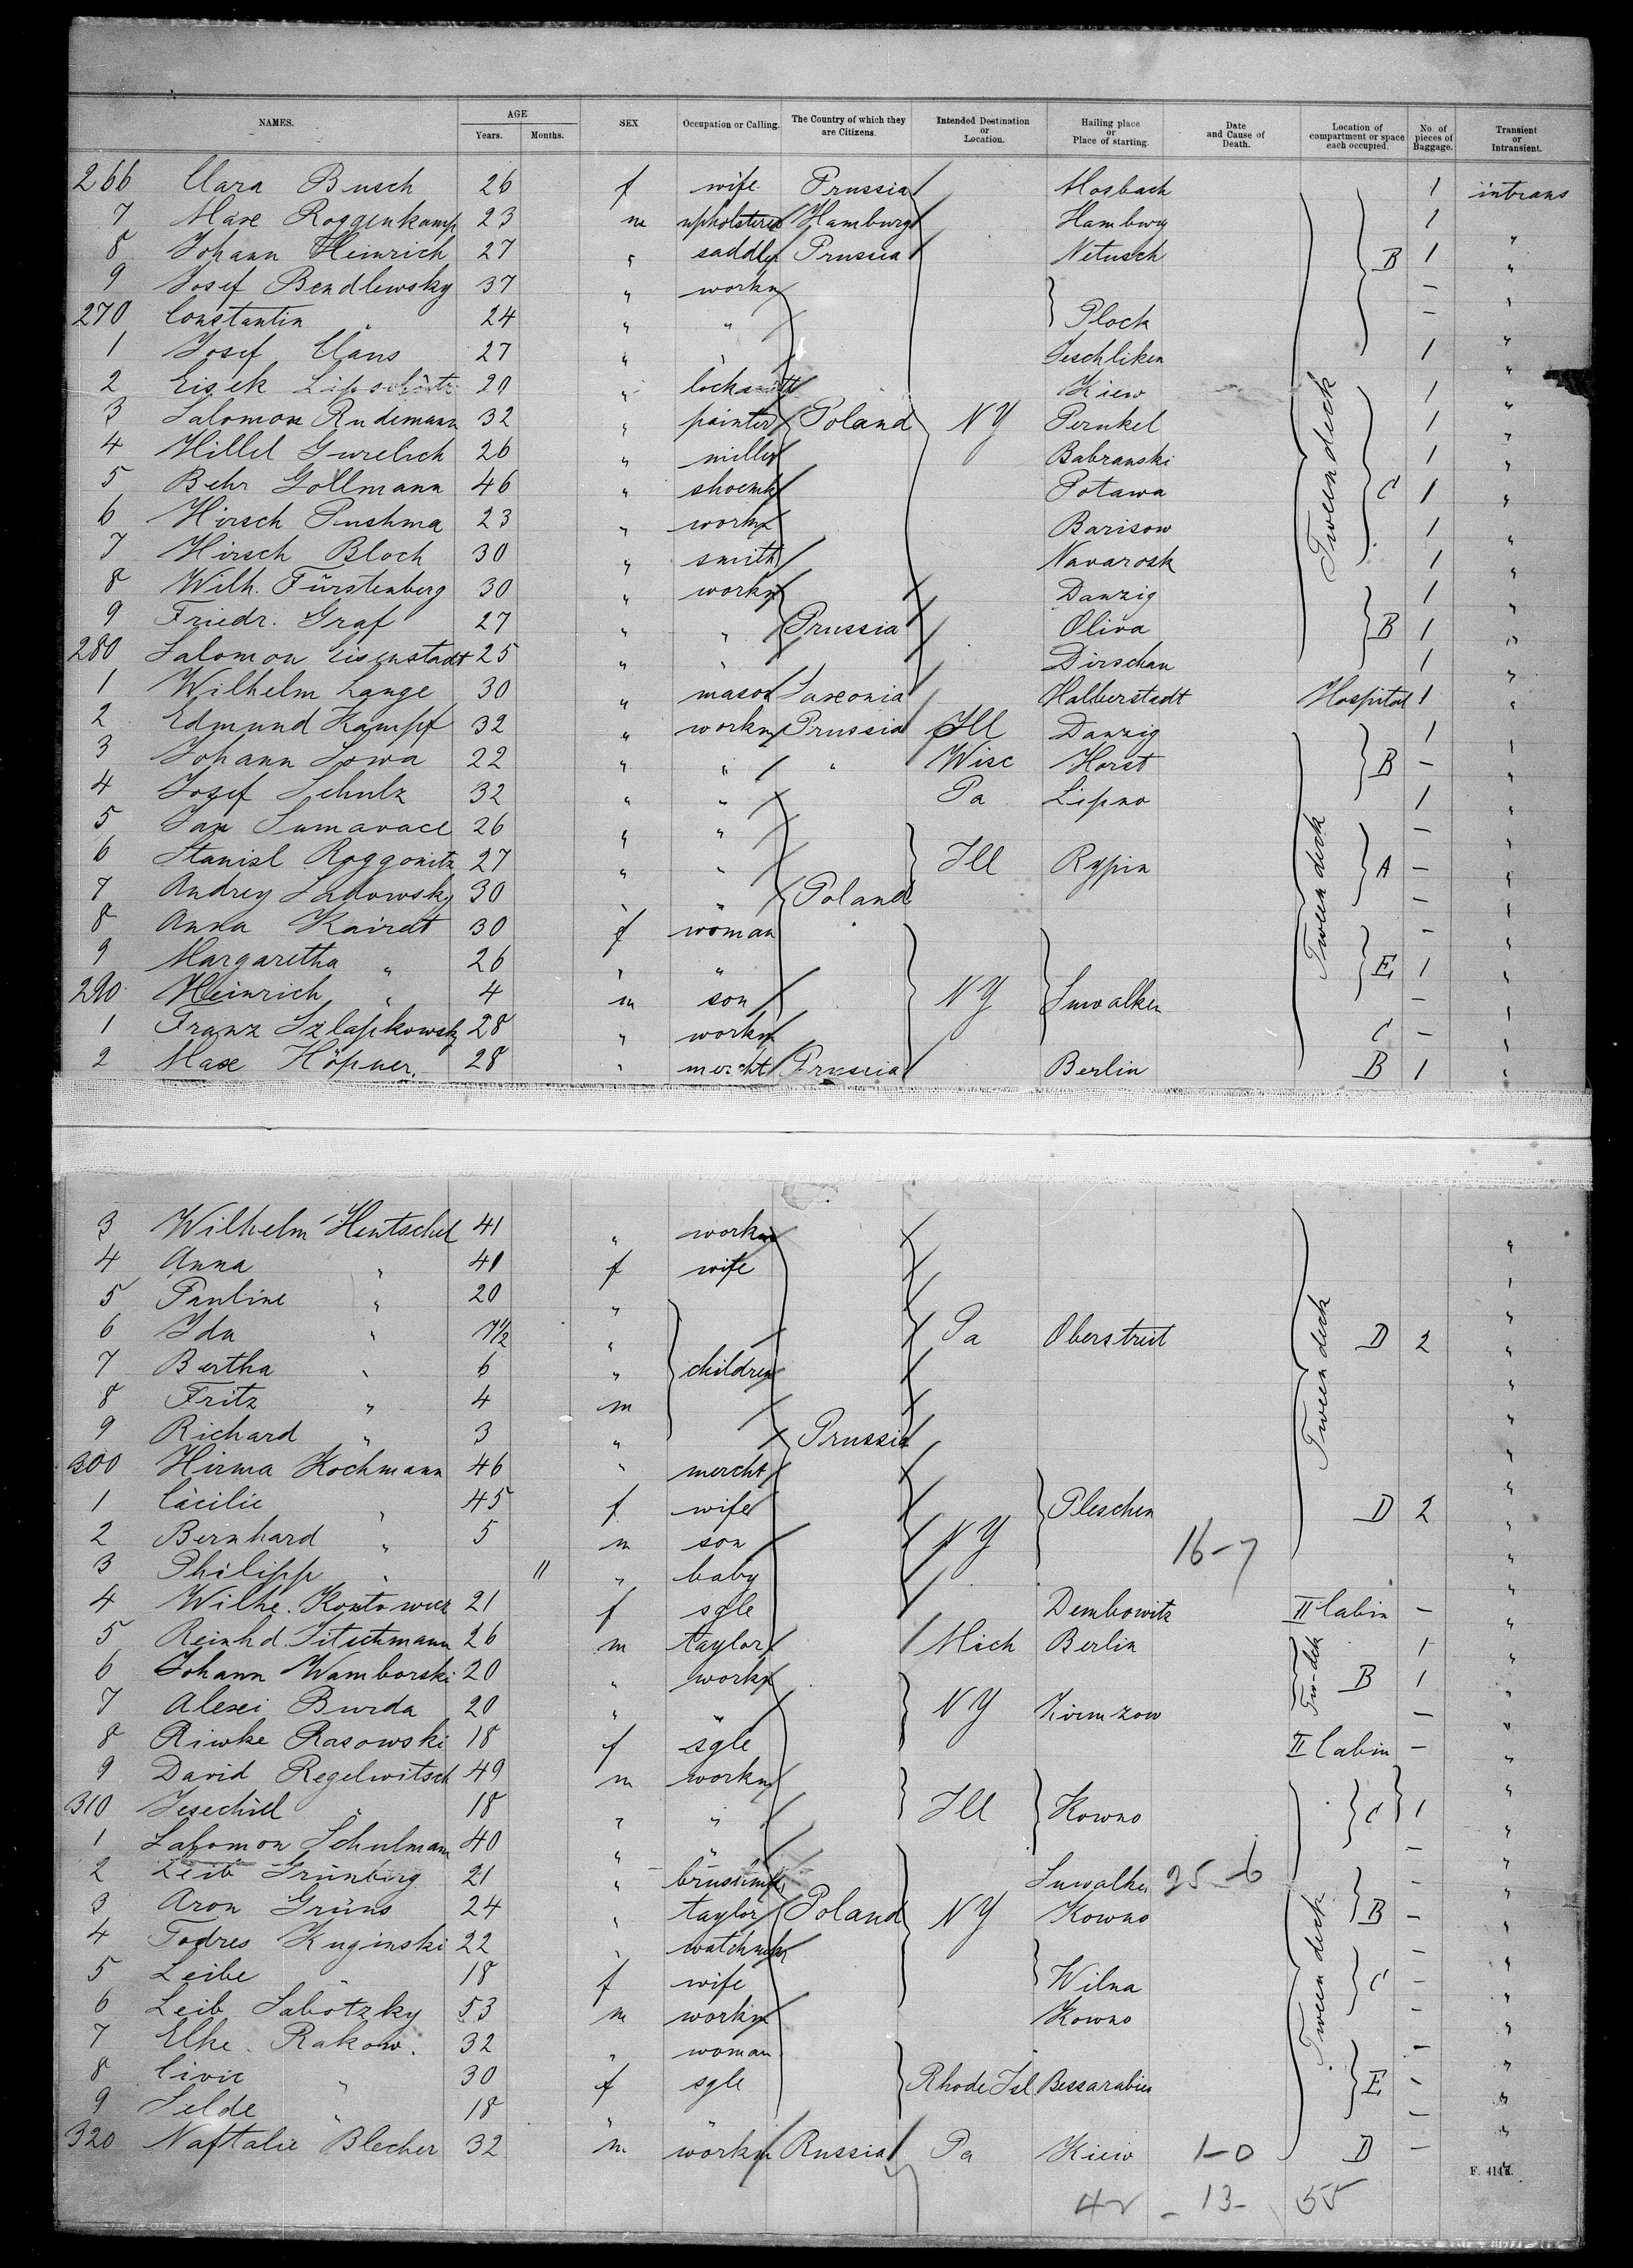 NAMES. AGE Years. Months. SEX Occupation or Calling. The Country of which they are Citizens. Intended Destination or Location. Hailing place or Place of starting. Date and Cause of Death. Location of compartment or space each occupied. No. of pieces of Baggage. Transient or Intransient.
266 Clara Busch 26 f wife Prussia Mosbach 1 intrans
7 Max Roggenkamp 23 m upholsterer Hamburg Hamburg 1 "
8 Johann Heinrich 27 " saddler Prussia Netusch B 1 "
9 Josef Bendlewsky 37 " workm — "
270 Constantin " 24 " " Plock — "
1 Josef Claus 27 " " Jeschliken 1 "
2 Eisek Lipschütz 20 " locksmith Kiew 1 "
3 Salomon Rudemann 32 " painter Poland NY Pernkel Tweendeck 1 "
4 Hillel Gurelich 26 " miller Babranski 1 "
5 Behr Gollmann 46 " shoemk Potawa C 1 "
6 Hirsch Pushma 23 " workm Barisow 1 "
7 Hirsch Bloch 30 " smith Navarosk 1 "
8 Wilh. Fürstenberg 30 " workm Danzig 1 "
9 Friedr. Graf 27 " " Prussia Oliva B 1 "
280 Salomon Eisenstadt 25 " " Dirschau 1 "
1 Wilhelm Lange 30 " mason Saxonia Halberstadt Hospital 1 "
2 Edmund Kampf 32 " workm Prussia Ill Danzig 1 "
3 Johann Sowa 22 " " " Wisc Horst B — "
4 Josef Schulz 32 " " Pa Lipno 1 "
5 Jan 26 " " — "
6 Stanisl Roggonitz 27 " " Ill Rypin Tween deck A — "
7 Andrey Sadowsky 30 " " Poland — "
8 Anna Kairat 30 f woman — "
9 Margaretha " 26 " " E 1 "
290 Heinrich " 4 m son NY Suwalken — "
1 Franz Szlapkowsky 28 " workm C — "
2 Max Höpner. 28 " mercht Prussia Berlin B 1 "
3 Wilhelm Hentschel 41 " workm "
4 Anna " 41 f wife "
5 Pauline " 20 " "
6 Ida " 7½ " Pa Oberstreit Tween deck D 2 "
7 Bertha " 6 " children "
8 Fritz " 4 m "
9 Richard " 3 " Prussia "
300 Hirma Kochmann 46 " mercht "
1 Cäcilie " 45 f wife Pleschen D 2 "
2 Bernhard " 5 m son NY 16-7 "
3 Philipp " 11 " baby "
4 Wilhe. Kontowicz 21 f sgle Dembowitz II Cabin — "
5 Reinhd. 26 m taylor Mich Berlin 1 "
6 Johann Wamborski 20 " workm Tw-deck B 1 "
7 Alexei Burda 20 " " NY — "
8 Riwke Rasowski 18 f sgle II Cabin — "
9 David Regelwitsch 49 m workm "
310 Jesechiel " 18 " " Ill Kowno C 1 "
1 Salomon Schulmann 40 " " — "
2 Leib Grünberg 21 " Suwalken 25-6 — "
3 Aron Grüns 24 " taylor Poland NY Kowno B — "
4 Todres Kuginski 22 " watchmk — "
5 Leibe " 18 f wife Wilna Tween deck C — "
6 Leib Sabotzky 53 m workm Kowno — "
7 Elke Rakow. 32 " woman — "
8 Civie " 30 f sgle Rhode Isl Bessarabien E — "
9 Selde " 18 " " — "
320 Naftalie Blecher 32 m workm Russia Pa Kiew 1-0 D — "
F. 414
42 - 13- 55